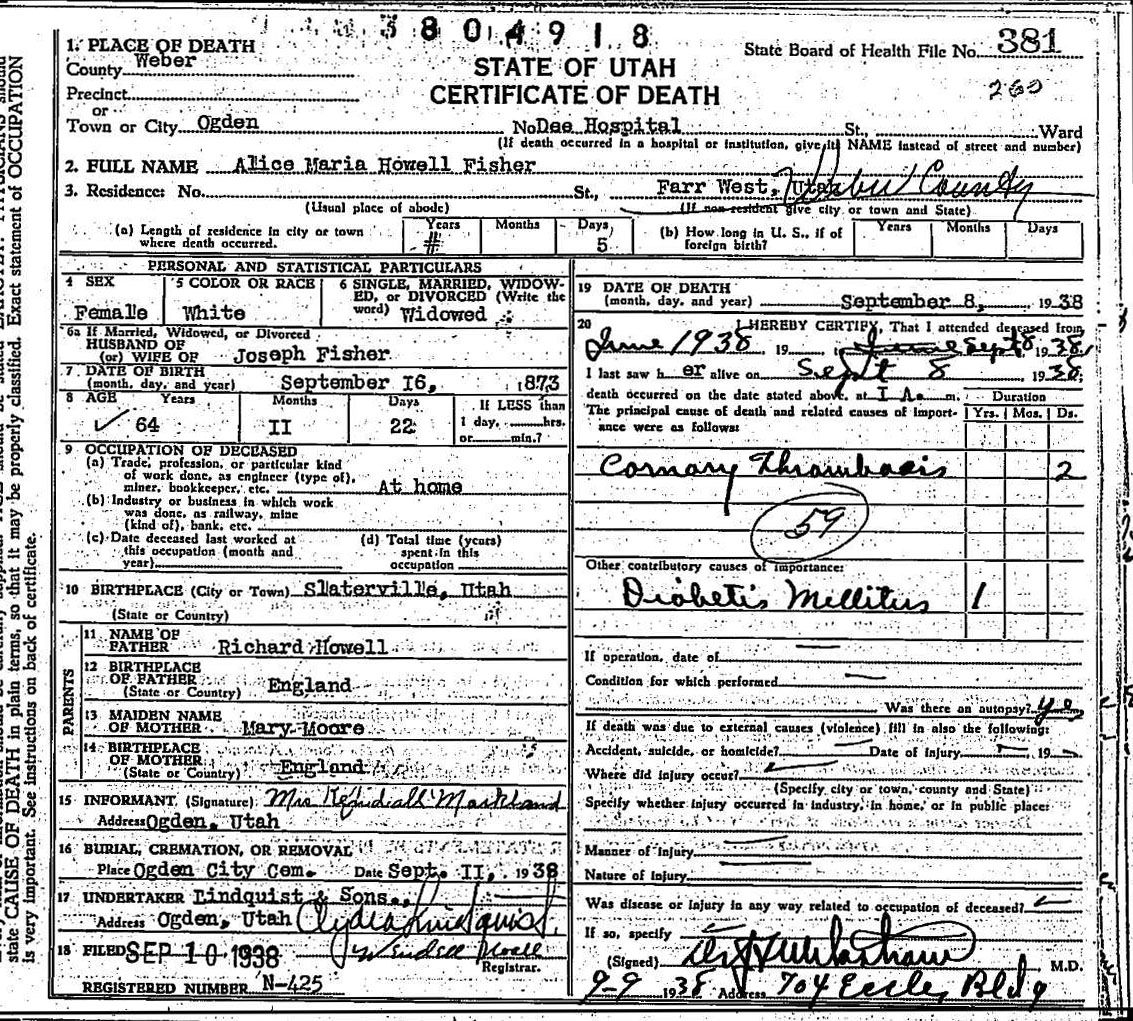 3804918
1. PLACE OF DEATH
County Weber
State Board of Health File No. 381
STATE OF UTAH
CERTIFICATE OF DEATH
260
Precinct
or
Town or City Ogden No Dee Hospital St., Ward
(If death occurred in a hospital or institution, give its NAME instead of street and number)
2. FULL NAME Alice Maria Howell Fisher
3. Residence: No. St., Farr West, Utah Weber County
(Usual place of abode) (If non-resident give city or town and State)
(a) Length of residence in city or town where death occurred. Years # Months Days 5
(b) How long in U. S., if of foreign birth? Years Months Days
PERSONAL AND STATISTICAL PARTICULARS
4 SEX Female
5 COLOR OR RACE White
6 SINGLE, MARRIED, WIDOWED, or DIVORCED (Write the word) Widowed
6a If Married, Widowed, or Divorced
HUSBAND OF
(or) WIFE OF Joseph Fisher
7 DATE OF BIRTH
(month, day, and year) September I6, 1873
8 AGE Years 64 Months II Days 22 If LESS than 1 day, hrs. or min.?
9 OCCUPATION OF DECEASED
(a) Trade, profession, or particular kind
of work done, as engineer (type of),
miner, bookkeeper, etc. At home
(b) Industry or business in which work
was done, as railway, mine
(kind of), bank, etc.
(c) Date deceased last worked at
this occupation (month and
year)
(d) Total time (years)
spent in this
occupation
10 BIRTHPLACE (City or Town) Slaterville, Utah
(State or Country)
PARENTS
11 NAME OF
FATHER Richard Howell
12 BIRTHPLACE
OF FATHER
(State or Country) England
13 MAIDEN NAME
OF MOTHER Mary Moore
14 BIRTHPLACE
OF MOTHER
(State or Country) England
15 INFORMANT (Signature) Mrs Kendall Markland
Address Ogden, Utah
16 BURIAL, CREMATION, OR REMOVAL
Place Ogden City Cem. Date Sept. II, 1938
17 UNDERTAKER Lindquist & Sons.,
Address Ogden, Utah Clyde Lindquist
18 FILED SEP 10 1938
Registrar.
REGISTERED NUMBER N-425
19 DATE OF DEATH
(month, day, and year) September 8, 1938
20 I HEREBY CERTIFY, That I attended deceased from
June 1938 19 , June Sept 8 1938,
I last saw h er alive on Sept 8 1938,
death occurred on the date stated above, at I A. m.
Duration
The principal cause of death and related causes of importance were as follows: Yrs. Mos. Ds.
Cornary Thrombosis 2
59
Other contributory causes of importance:
Diabetis Mellitus 1
If operation, date of
Condition for which performed
Was there an autopsy? yes
If death was due to external causes (violence) fill in also the following:
Accident, suicide, or homicide? Date of injury 19
Where did injury occur?
(Specify city or town, county and State)
Specify whether injury occurred in industry, in home, or in public place:
Manner of injury
Nature of injury
Was disease or injury in any way related to occupation of deceased?
If so, specify
(Signed) M.D.
9-9 1938 Address 704 Eccles Bldg
state CAUSE OF DEATH in plain terms, so that it may be properly classified. Exact statement of OCCUPATION
is very important. See instructions on back of certificate.